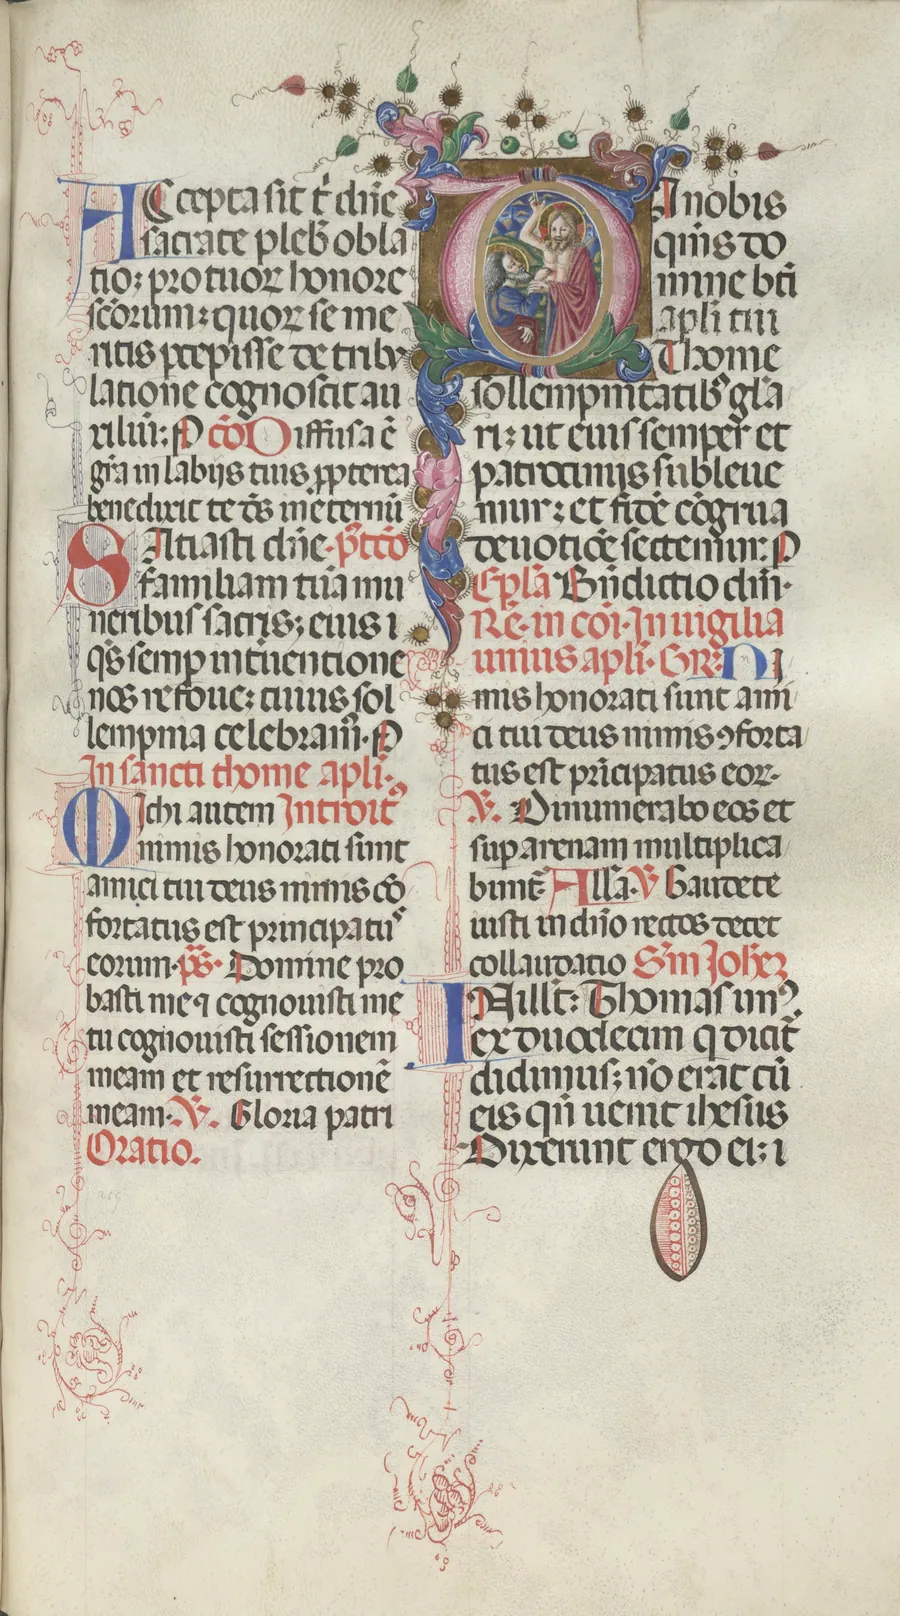 Accepta sit t̄ dn̄e
sacrate pleb̄ obla
tio: pro tuoꝝ honore
scōrum: quoꝝ se me
ritis p̄cepisse de tribu
latione cognoscit au
xiliū: P cō Diffusa ē
gr̄a in labijs tuis ꝓpterea
benedixit te d̄s in eternū
Satiasti dn̄e· p̄tcō
familiam tuā mu
neribus sacris: eius
q̄s semp̄ interuentione
nos refoue: cuius sol
lempnia celebram᷒· P
In sancti thome apl̄i·
Michi autem Introit᷒
nimis honorati sunt
amici tui deus nimis cō
fortatus est principatu᷒
eorum· p̄s· Domine pro
basti me ⁊ cognouisti me
tu cognouisti sessionem
meam et resurrectionē
meam· V̄. Gloria patri
Oratio.
Da nobis
q̄us do
mine bt̄i
apl̄i tui
Thome
sollempnitatib᷒ gl̄a
ri: ut eius semper et
patrocinijs subleue
mur: et fidē cōgrua
deuotiōe sectemur: P
Ep̄la Bn̄dictio dn̄i·
Re· in cōi· In uigilia
unius apl̄i· Gr̄· Ni
mis honorati sunt ami
ci tui deus nimis ꝯforta
tus est pri̅cipatus eor·
V̄. Dinumerabo eos et
sup arenam multiplica
bunt̄ All̄a· V̄ Gaudete
iusti in dn̄o rectos decet
collaudatio Sm̄ Joh̄eꝫ
IN ill̄ t̄: Thomas un᷒
ex duodecim q̄ dicit̄
didimus: nō erat cū
eis qn̄ uenit ihesus
Dixerunt ergo ei: i